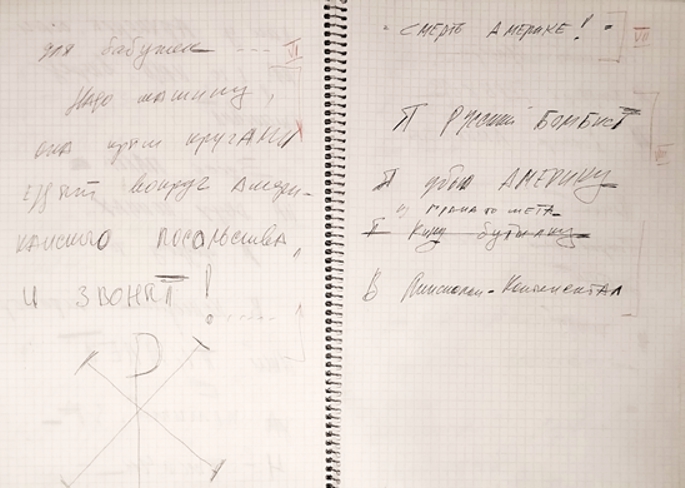 для бабушек ---- VI
Надо машину,
она прям кругами
ездит вокруг амери-
канского посольства,
и звонят!
Р
"СМЕРТЬ АМЕРИКЕ!" VII
Я русский БОМБИСТ
Я убью АМЕРИКУ
из гранатомета
Я кину бутылку
В Линкольн-Континентал